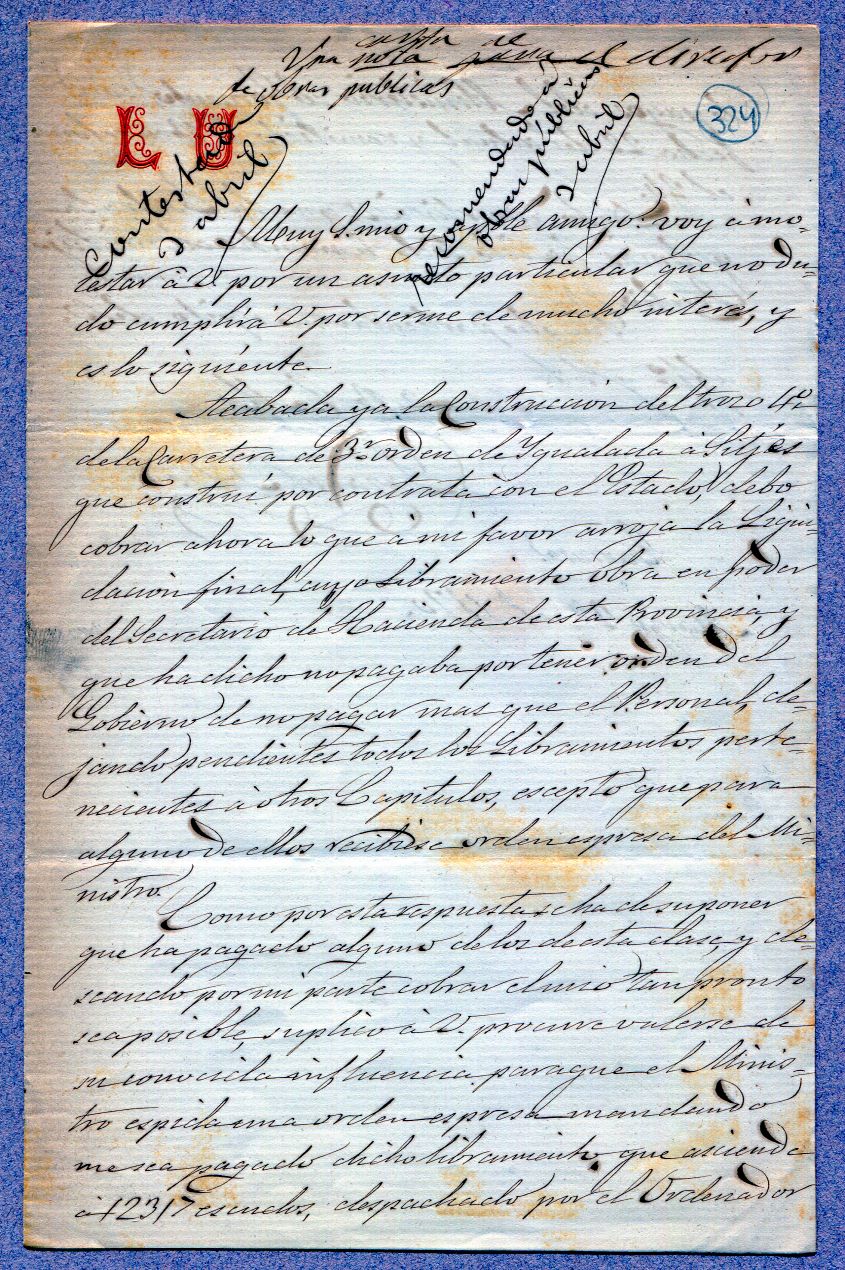 Una carta de
nota para el director
de obras publicas
324
L U
Contestada
2 abril
recomendado á
obras públicas
2 abril
Muy S. mio y amigo: voy á mo-
lestar á V. por un asunto particular que no du-
do cumplirá V. por serme de mucho interés, y
es lo siguiente
Acabada ya la Construccion del trozo 4º
de la Carretera de 3r orden de Ygualada á Sitjes
que construí por contrata con el Estado, debo
cobrar ahora lo que á mi favor arroja la Liqui-
dacion final, cuyo Libramiento obra en poder
del Secretario de Hacienda de esta Provincia, y
que ha dicho no pagaba por tener orden del
Gobierno de no pagar mas que el Personal, de-
jando pendientes todos los Libramientos perte-
necientes á otros Capítulos, escepto que para
alguno de ellos recibiese orden espresa del Mi-
nistro.
Como por esta respuesta se ha de suponer
que ha pagado alguno de los de esta clase, y de-
seando por mi parte cobrar el mio tan pronto
sea posible, suplico á V. procure valerse de
su conocida influencia para que el Minis-
tro espida una orden espresa mandando
me sea pagado dicho libramiento que asciende
á 12317 escudos, despachado por el Ordenador